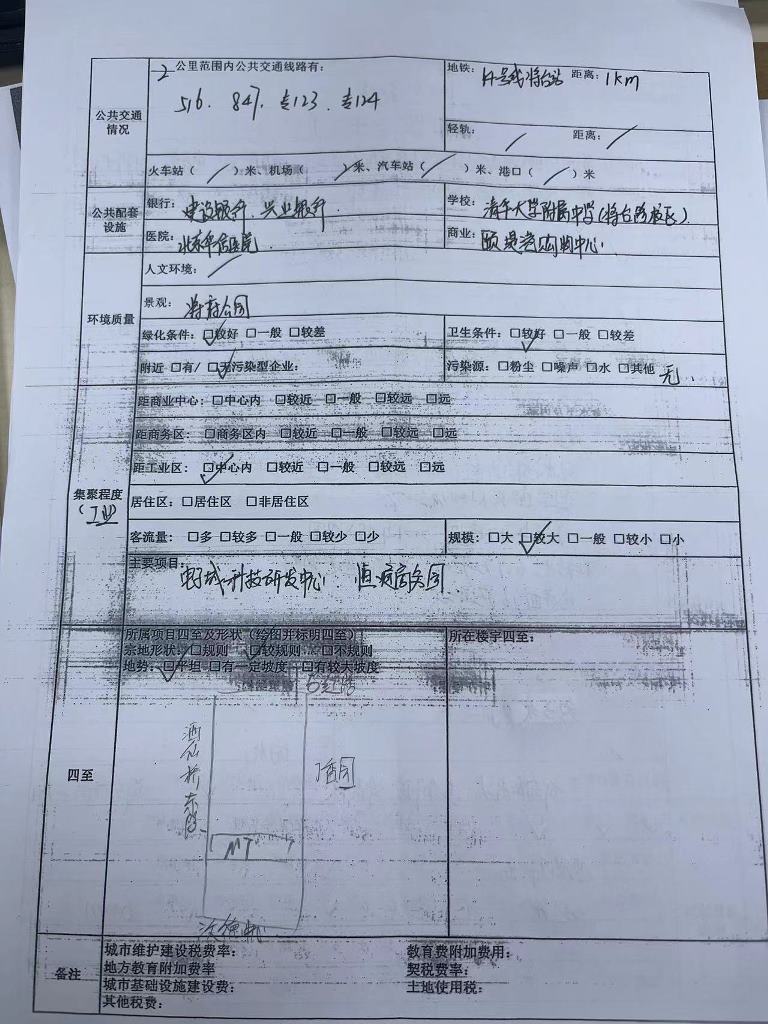 2 公里范围内公共交通线路有:
地铁: 14号线将台站 距离: 1km
516. 847. 专123. 专124
公共交通情况
轻轨: / 距离: /
火车站( / )米、机场( / )米、汽车站( / )米、港口( / )米
公共配套设施
银行: 建设银行. 兴业银行.
学校: 清华大学附属中学(将台路校区).
医院: 北京华信医院
商业: 颐堤港购物中心.
人文环境: /
环境质量
景观: 将府公园
绿化条件: ☑较好 □一般 □较差
卫生条件: ☑较好 □一般 □较差
附近 □有/ ☑无污染型企业:
污染源: □粉尘 □噪声 □水 □其他 无.
距商业中心: □中心内 □较近 □一般 □较远 □远
距商务区: □商务区内 □较近 □一般 □较远 □远
距工业区: ☑中心内 □较近 □一般 □较远 □远
集聚程度
(工业)
居住区: □居住区 □非居住区
客流量: □多 □较多 □一般 □较少 □少
规模: □大 ☑较大 □一般 □较小 □小
主要项目:
电子城·科技研发中心
所属项目四至及形状(绘图并标明四至)
所在楼宇四至:
宗地形状: □规则 □较规则 □不规则
地势: ☑平坦 □有一定坡度 □有较大坡度
酒仙桥东路
四至
M7
备注
城市维护建设税费率:
教育费附加费用:
地方教育附加费率
契税费率:
城市基础设施建设费:
土地使用税:
其他税费: